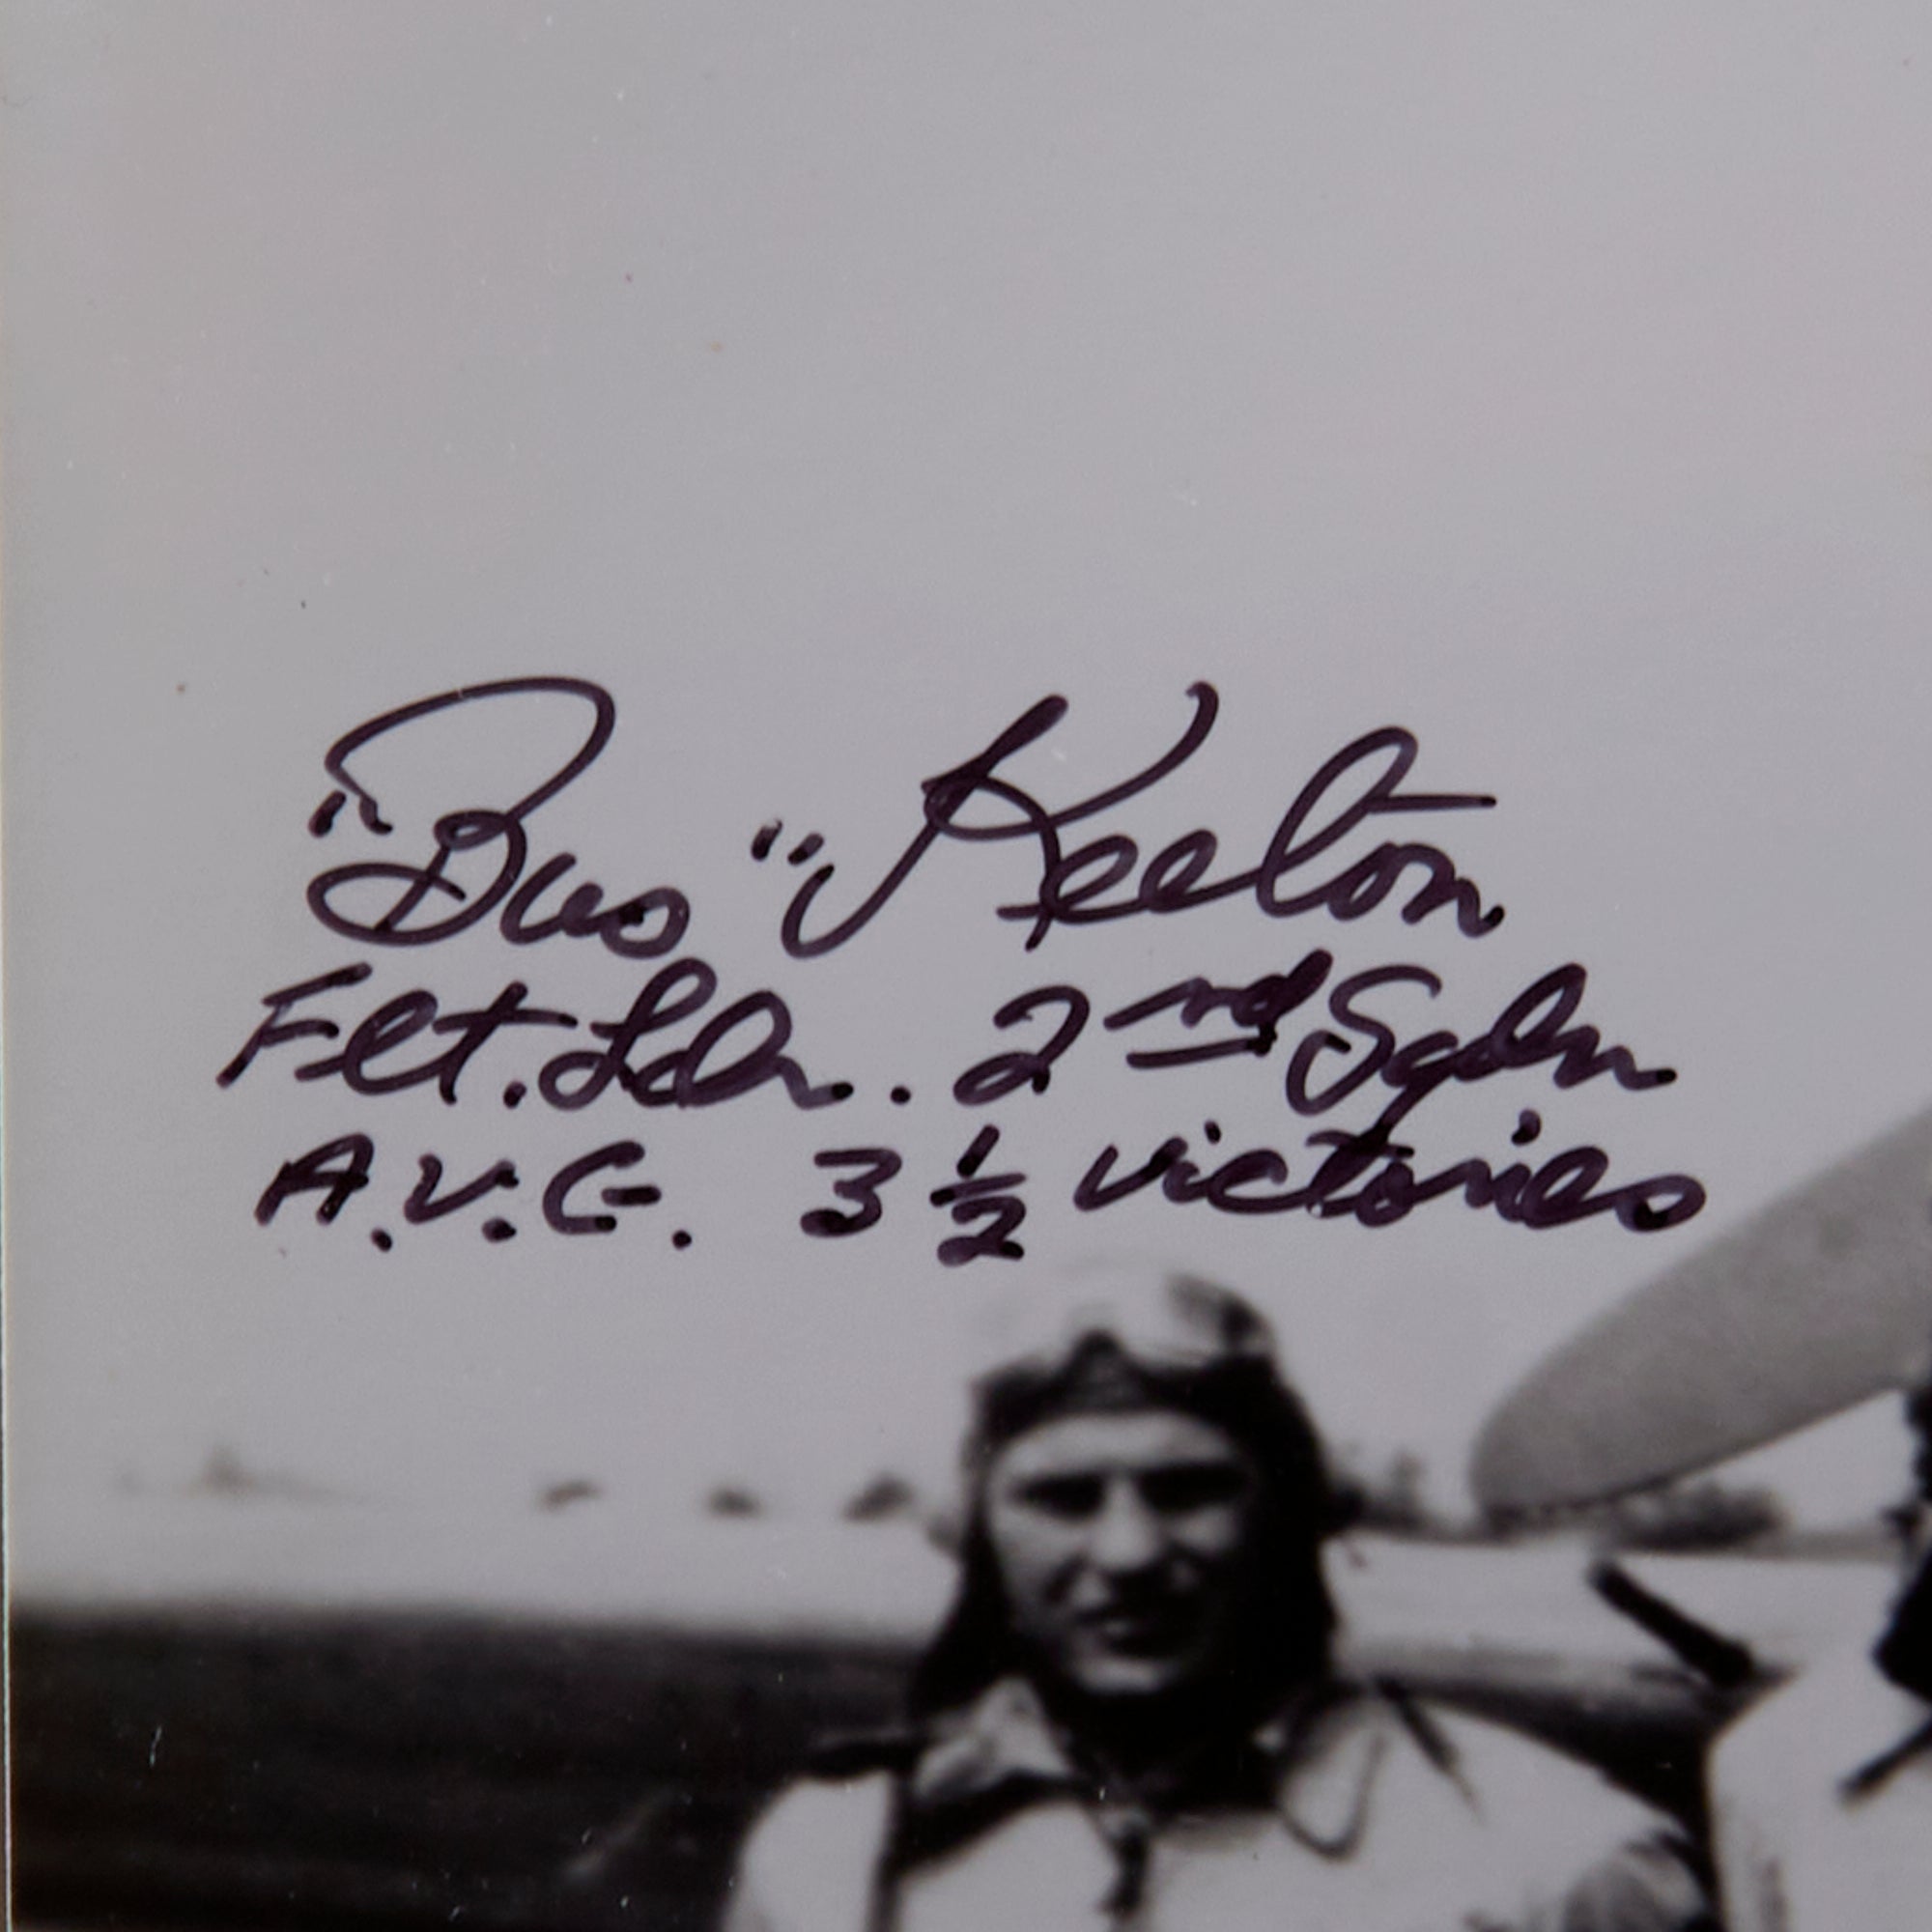 "Bus" Keeton
Flt. Ldr. . 2nd Sqdn
A.V.G. 3 1/2 victories